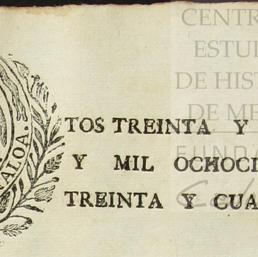 CENTR
ESTU
DE HIS
DE ME
FUNDA
TOS TREINTA Y
Y MIL OCHOCI
TREINTA Y CUA
ALOA.